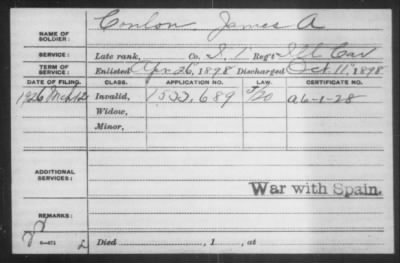 Conlon, James A
NAME OF SOLDIER:
SERVICE: Late rank, Co. I, 1 Reg't Ill Cav
TERM OF SERVICE: Enlisted Apr 26, 1898 Discharged Oct. 11, 1898
DATE OF FILING. CLASS. APPLICATION NO. LAW. CERTIFICATE NO.
1926 Mch 12 Invalid, 1533,689 A6-1-28
Widow,
Minor,
ADDITIONAL SERVICES:
War with Spain.
REMARKS:
3-471 2 Died , 1 , at